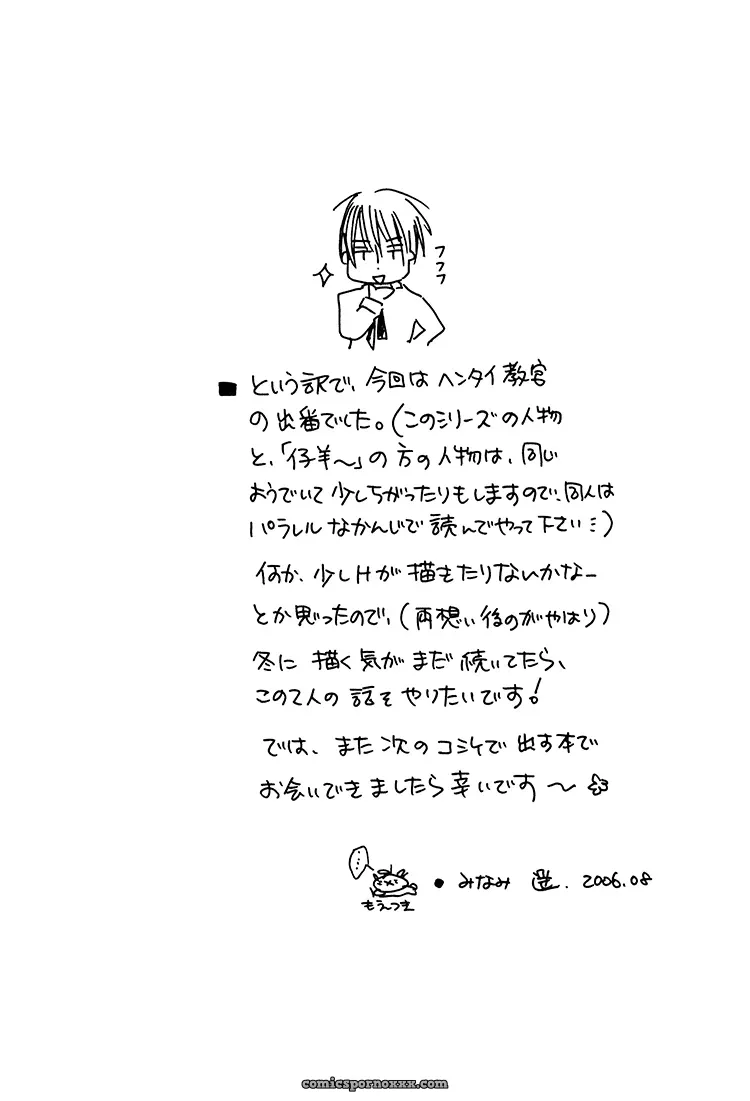 フフフ
■ という訳で、今回はヘンタイ教官
の出番でした。(このシリーズの人物
と、「仔羊～」の方の人物は、同じ
ようでいて少しちがったりもしますので、同人は
パラレルなかんじで読んでやって下さい…)
何か、少しHが描きたりないかなー
とか思ったので、(両想い後のがやはり)
冬に描く気がまだ続いてたら、
この2人の話をやりたいです!
では、また次のコミケで出す本で
お会いできましたら幸いです～
……
もえつき
● みなみ 遥. 2006.08
comicspornoxxx.com